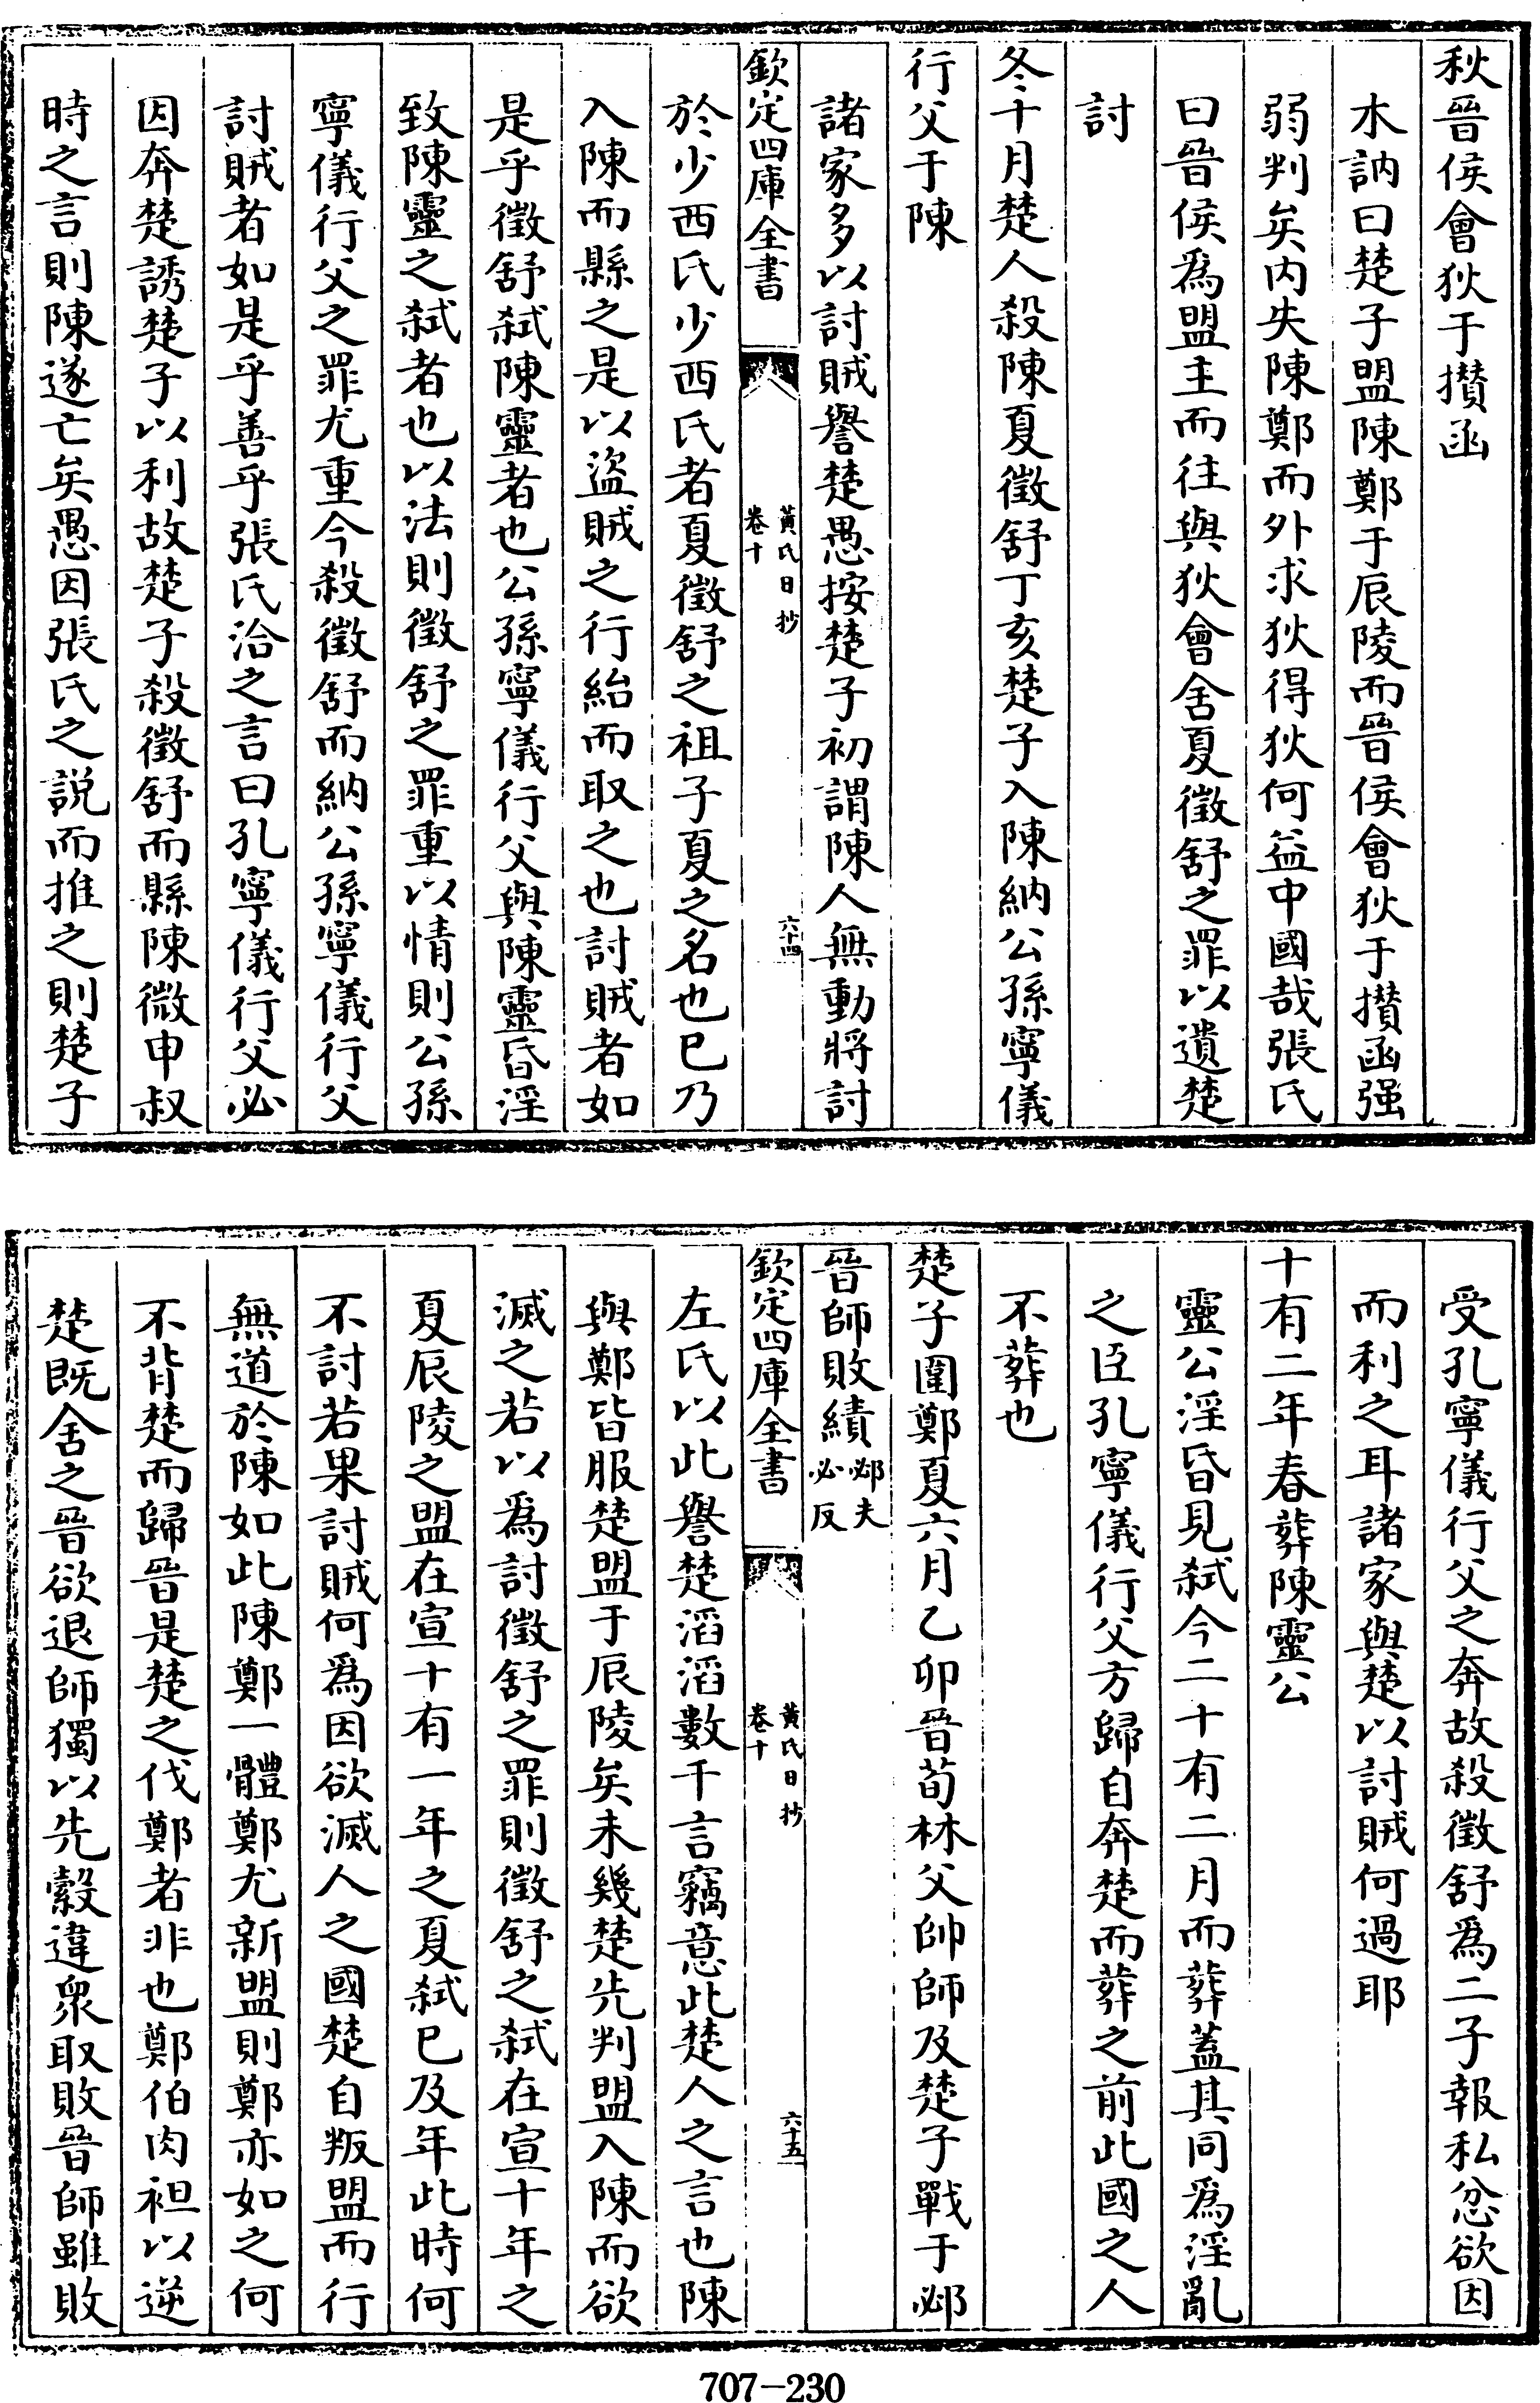 秋晉侯會狄于攅函
木訥曰楚子盟陳鄭于辰陵而晉侯會狄于攅函强
弱判矣内失陳鄭而外求狄得狄何益中國哉張氏
曰晉侯為盟主而往與狄會舍夏徵舒之罪以遺楚
討
冬十月楚人殺陳夏徵舒丁亥楚子入陳納公孫寧儀
行父于陳
諸家多以討賊譽楚愚按楚子初謂陳人無動將討
欽定四庫全書
黃氏日抄
卷十
六十四
於少西氏少西氏者夏徵舒之祖子夏之名也已乃
入陳而縣之是以盜賊之行紿而取之也討賊者如
是乎徵舒弑陳靈者也公孫寧儀行父與陳靈昏淫
致陳靈之弑者也以法則徵舒之罪重以情則公孫
寧儀行父之罪尤重今殺徵舒而納公孫寧儀行父
討賊者如是乎善乎張氏洽之言曰孔寧儀行父必
因奔楚誘楚子以利故楚子殺徵舒而縣陳微申叔
時之言則陳遂亡矣愚因張氏之説而推之則楚子
受孔寧儀行父之奔故殺徵舒為二子報私忿欲因
而利之耳諸家與楚以討賊何過耶
十有二年春葬陳靈公
靈公淫昏見弑今二十有二月而葬蓋其同為淫亂
之臣孔寧儀行父方歸自奔楚而葬之前此國之人
不葬也
楚子圍鄭夏六月乙卯晉荀林父帥師及楚子戰于邲
晉師敗績邲夫必反
欽定四庫全書
黃氏日抄
卷十
六十五
左氏以此譽楚滔滔數千言竊意此楚人之言也陳
與鄭皆服楚盟于辰陵矣未幾楚先判盟入陳而欲
滅之若以為討徵舒之罪則徵舒之弑在宣十年之
夏辰陵之盟在宣十有一年之夏弑已及年此時何
不討若果討賊何為因欲滅人之國楚自叛盟而行
無道於陳如此陳鄭一體鄭尤新盟則鄭亦如之何
不背楚而歸晉是楚之伐鄭者非也鄭伯肉袒以逆
楚既舍之晉欲退師獨以先縠違衆取敗晉師雖敗
707-230